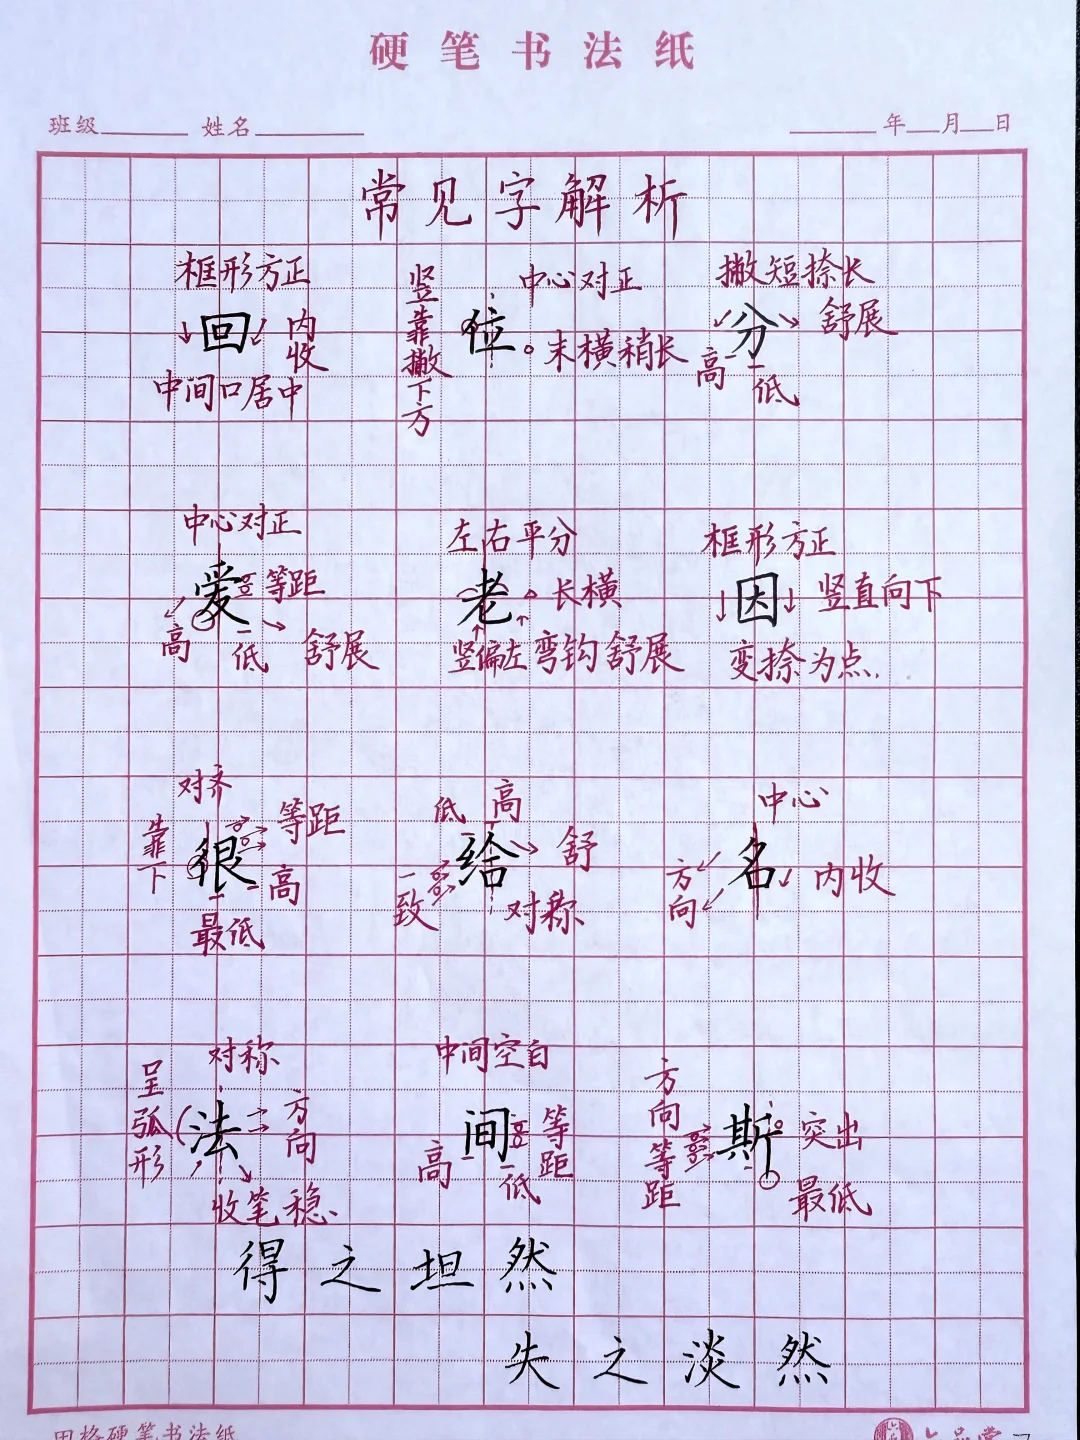 硬笔书法纸
班级 姓名 年 月 日
常见字解析
框形方正
回
内收
中间口居中
竖靠撇下方
中心对正
位
末横稍长
撇短捺长
分
舒展
高
低
中心对正
爱
等距
高
低
舒展
左右平分
老
长横
竖偏左 弯钩舒展
框形方正
因
竖直向下
变捺为点.
对齐
靠下
很
等距
高
最低
低
高
给
舒
一致
对称
中心
名
方向
内收
对称
呈弧形
法
方向
收笔稳.
中间空白
间
等距
高
低
方向等距
斯
突出
最低
得之坦然
失之淡然
田格硬笔书法纸
六品堂